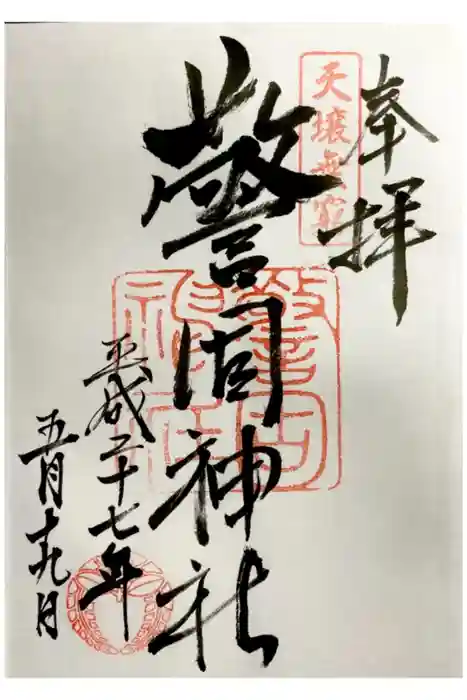 奉拝
天壌無窮
警固神社
警固神社
平成二十七年
五月十九日